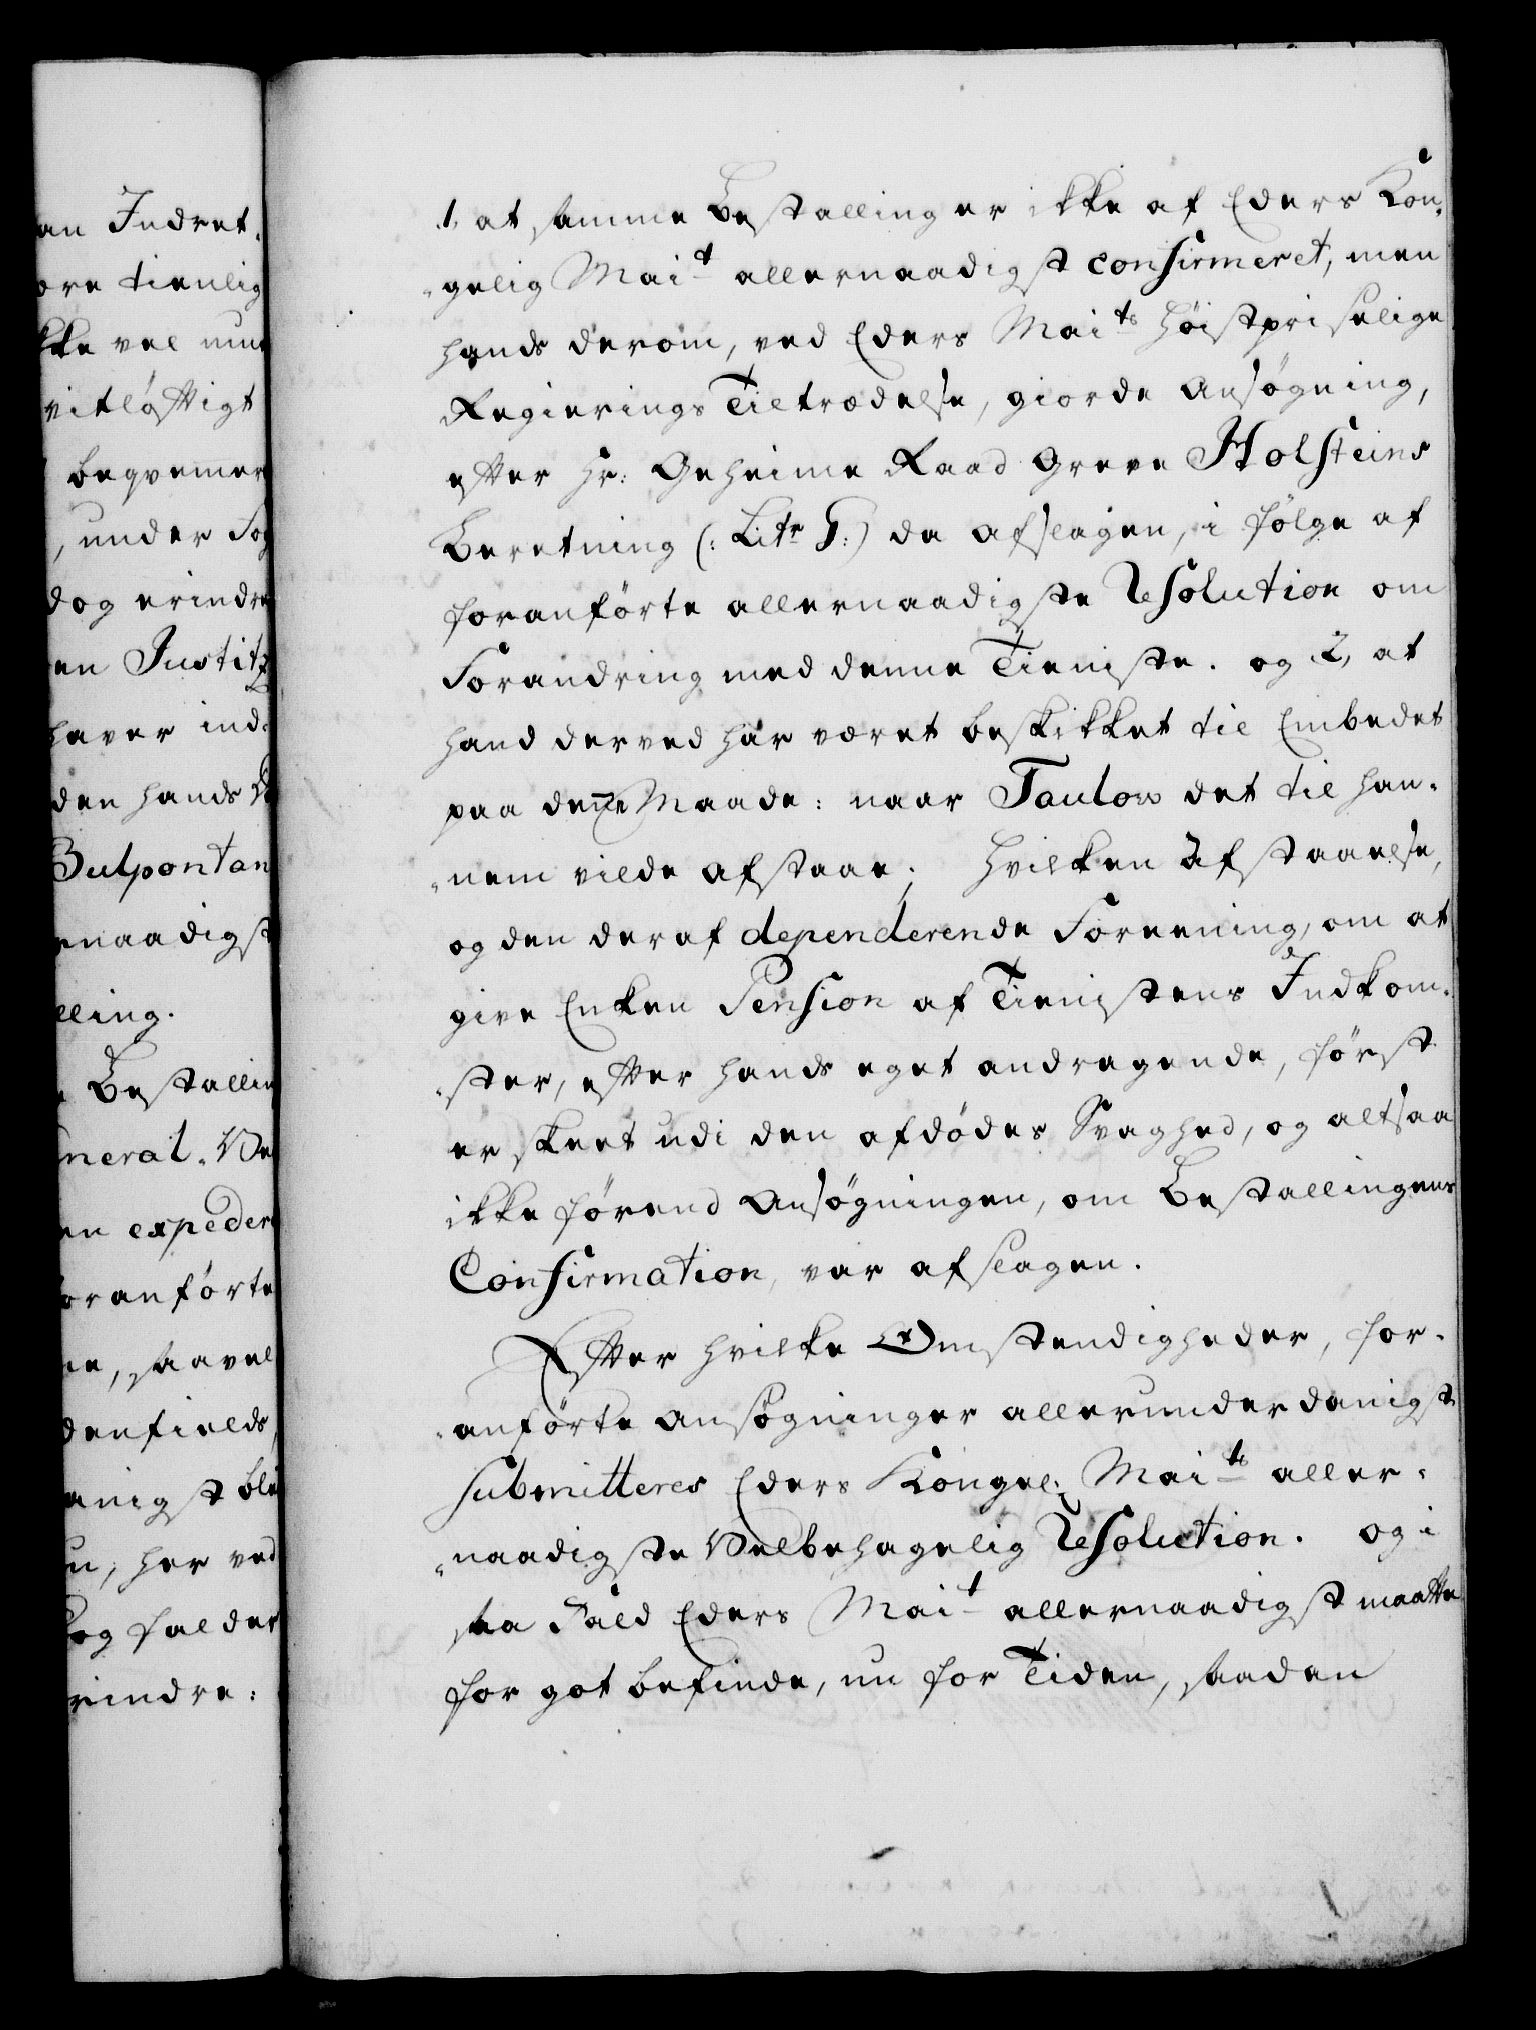 an Indret.
ore tienlig
kke vel
vitløftigt
beqvemer
, under
dog erindre
en Justitz
haver ind-
den hands
Bulpontan
rnaadigst
lling.
Bestallin
neral.
en expeder
oranførte
ne, saavel
denfields
anigst
n, her ved
og falder
rindre:
1, at samme Bestalling er ikke af Eders Kon-
-gelig Mait allernaadigst confirmeret, men
hands derom, ved Eders Maits Høistpriselige
Regierings Tiltrædelse, giorde Ansøgning,
efter Hr: Geheime Raad Greve Holsteins
Beretning (: Litr T:) da afslagen, i følge af
foranførte allernaadigste Resolution om
Forandring med denne Tieniste. og 2, at
hand derved har været beskikket til Embedet
paa denne Maade: naar Taulow det til han-
-nem vilde afstaae; Hvilken afstaaelse,
og den deraf dependerende Foreening, om at
give Enken Pension af Tienistens Indkom-
-ster, efter hands eget andragende, først
er skeet udi den afdødes Svaghed, og altsaa
ikke førend Ansøgningen, om Bestallingens
Confirmation, var afslagen.
Efter hvilke Omstendigheder, for-
-anførte ansøgninger allerunderdanigst
submitteres Eders Kongel: Maits aller-
-naadigste Velbehagelig Resolution. og i
saa Fald Eders Mait allernaadigst maatte
for got befinde, nu for Tiden, saadan